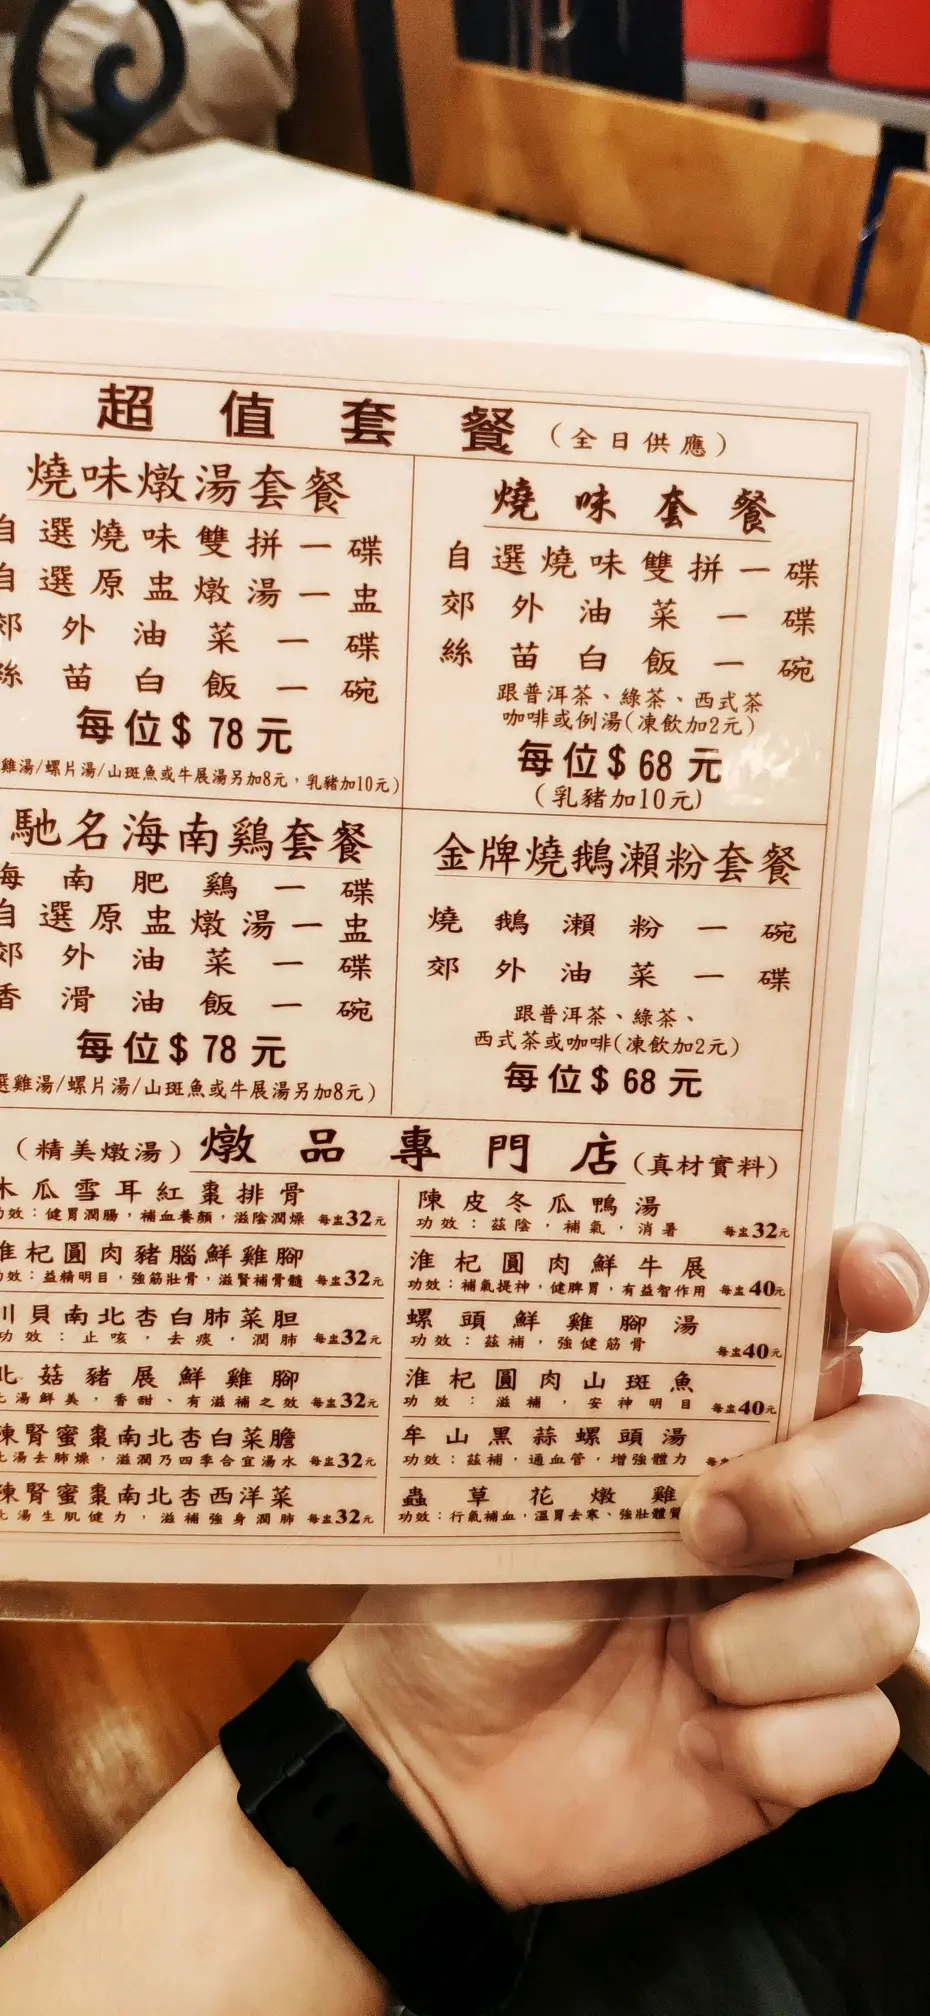 超值套餐(全日供應)
燒味燉湯套餐
自選燒味雙拼一碟
自選原盅燉湯一盅
郊外油菜一碟
絲苗白飯一碗
每位$78元
雞湯/螺片湯/山斑魚或牛展湯另加8元，乳豬加10元)
燒味套餐
自選燒味雙拼一碟
郊外油菜一碟
絲苗白飯一碗
跟普洱茶、綠茶、西式茶
咖啡或例湯(凍飲加2元)
每位$68元
(乳豬加10元)
馳名海南鷄套餐
海南肥鷄一碟
自選原盅燉湯一盅
郊外油菜一碟
香滑油飯一碗
每位$78元
選雞湯/螺片湯/山斑魚或牛展湯另加8元)
金牌燒鵝瀨粉套餐
燒鵝瀨粉一碗
郊外油菜一碟
跟普洱茶、綠茶、
西式茶或咖啡(凍飲加2元)
每位$68元
(精美燉湯)燉品專門店(真材實料)
木瓜雪耳紅棗排骨
功效：健胃潤腸，補血養顏，滋陰潤燥 每盅32元
淮杞圓肉豬腦鮮雞腳
功效：益精明目，強筋壯骨，滋腎補骨髓 每盅32元
川貝南北杏白肺菜胆
功效：止咳，去痰，潤肺 每盅32元
北菇豬展鮮雞腳
此湯鮮美，香甜、有滋補之效 每盅32元
陳腎蜜棗南北杏白菜膽
此湯去肺燥，滋潤乃四季合宜湯水 每盅32元
陳腎蜜棗南北杏西洋菜
此湯生肌健力，滋補強身潤肺 每盅32元
陳皮冬瓜鴨湯
功效：茲陰，補氣，消暑 每盅32元
淮杞圓肉鮮牛展
功效：補氣提神，健脾胃，有益智作用 每盅40元
螺頭鮮雞腳湯
功效：茲補，強健筋骨 每盅40元
淮杞圓肉山斑魚
功效：滋補，安神明目 每盅40元
牟山黑蒜螺頭湯
功效：茲補，通血管，增強體力 每盅
蟲草花燉雞
功效：行氣補血，溫胃去寒、強壯體質